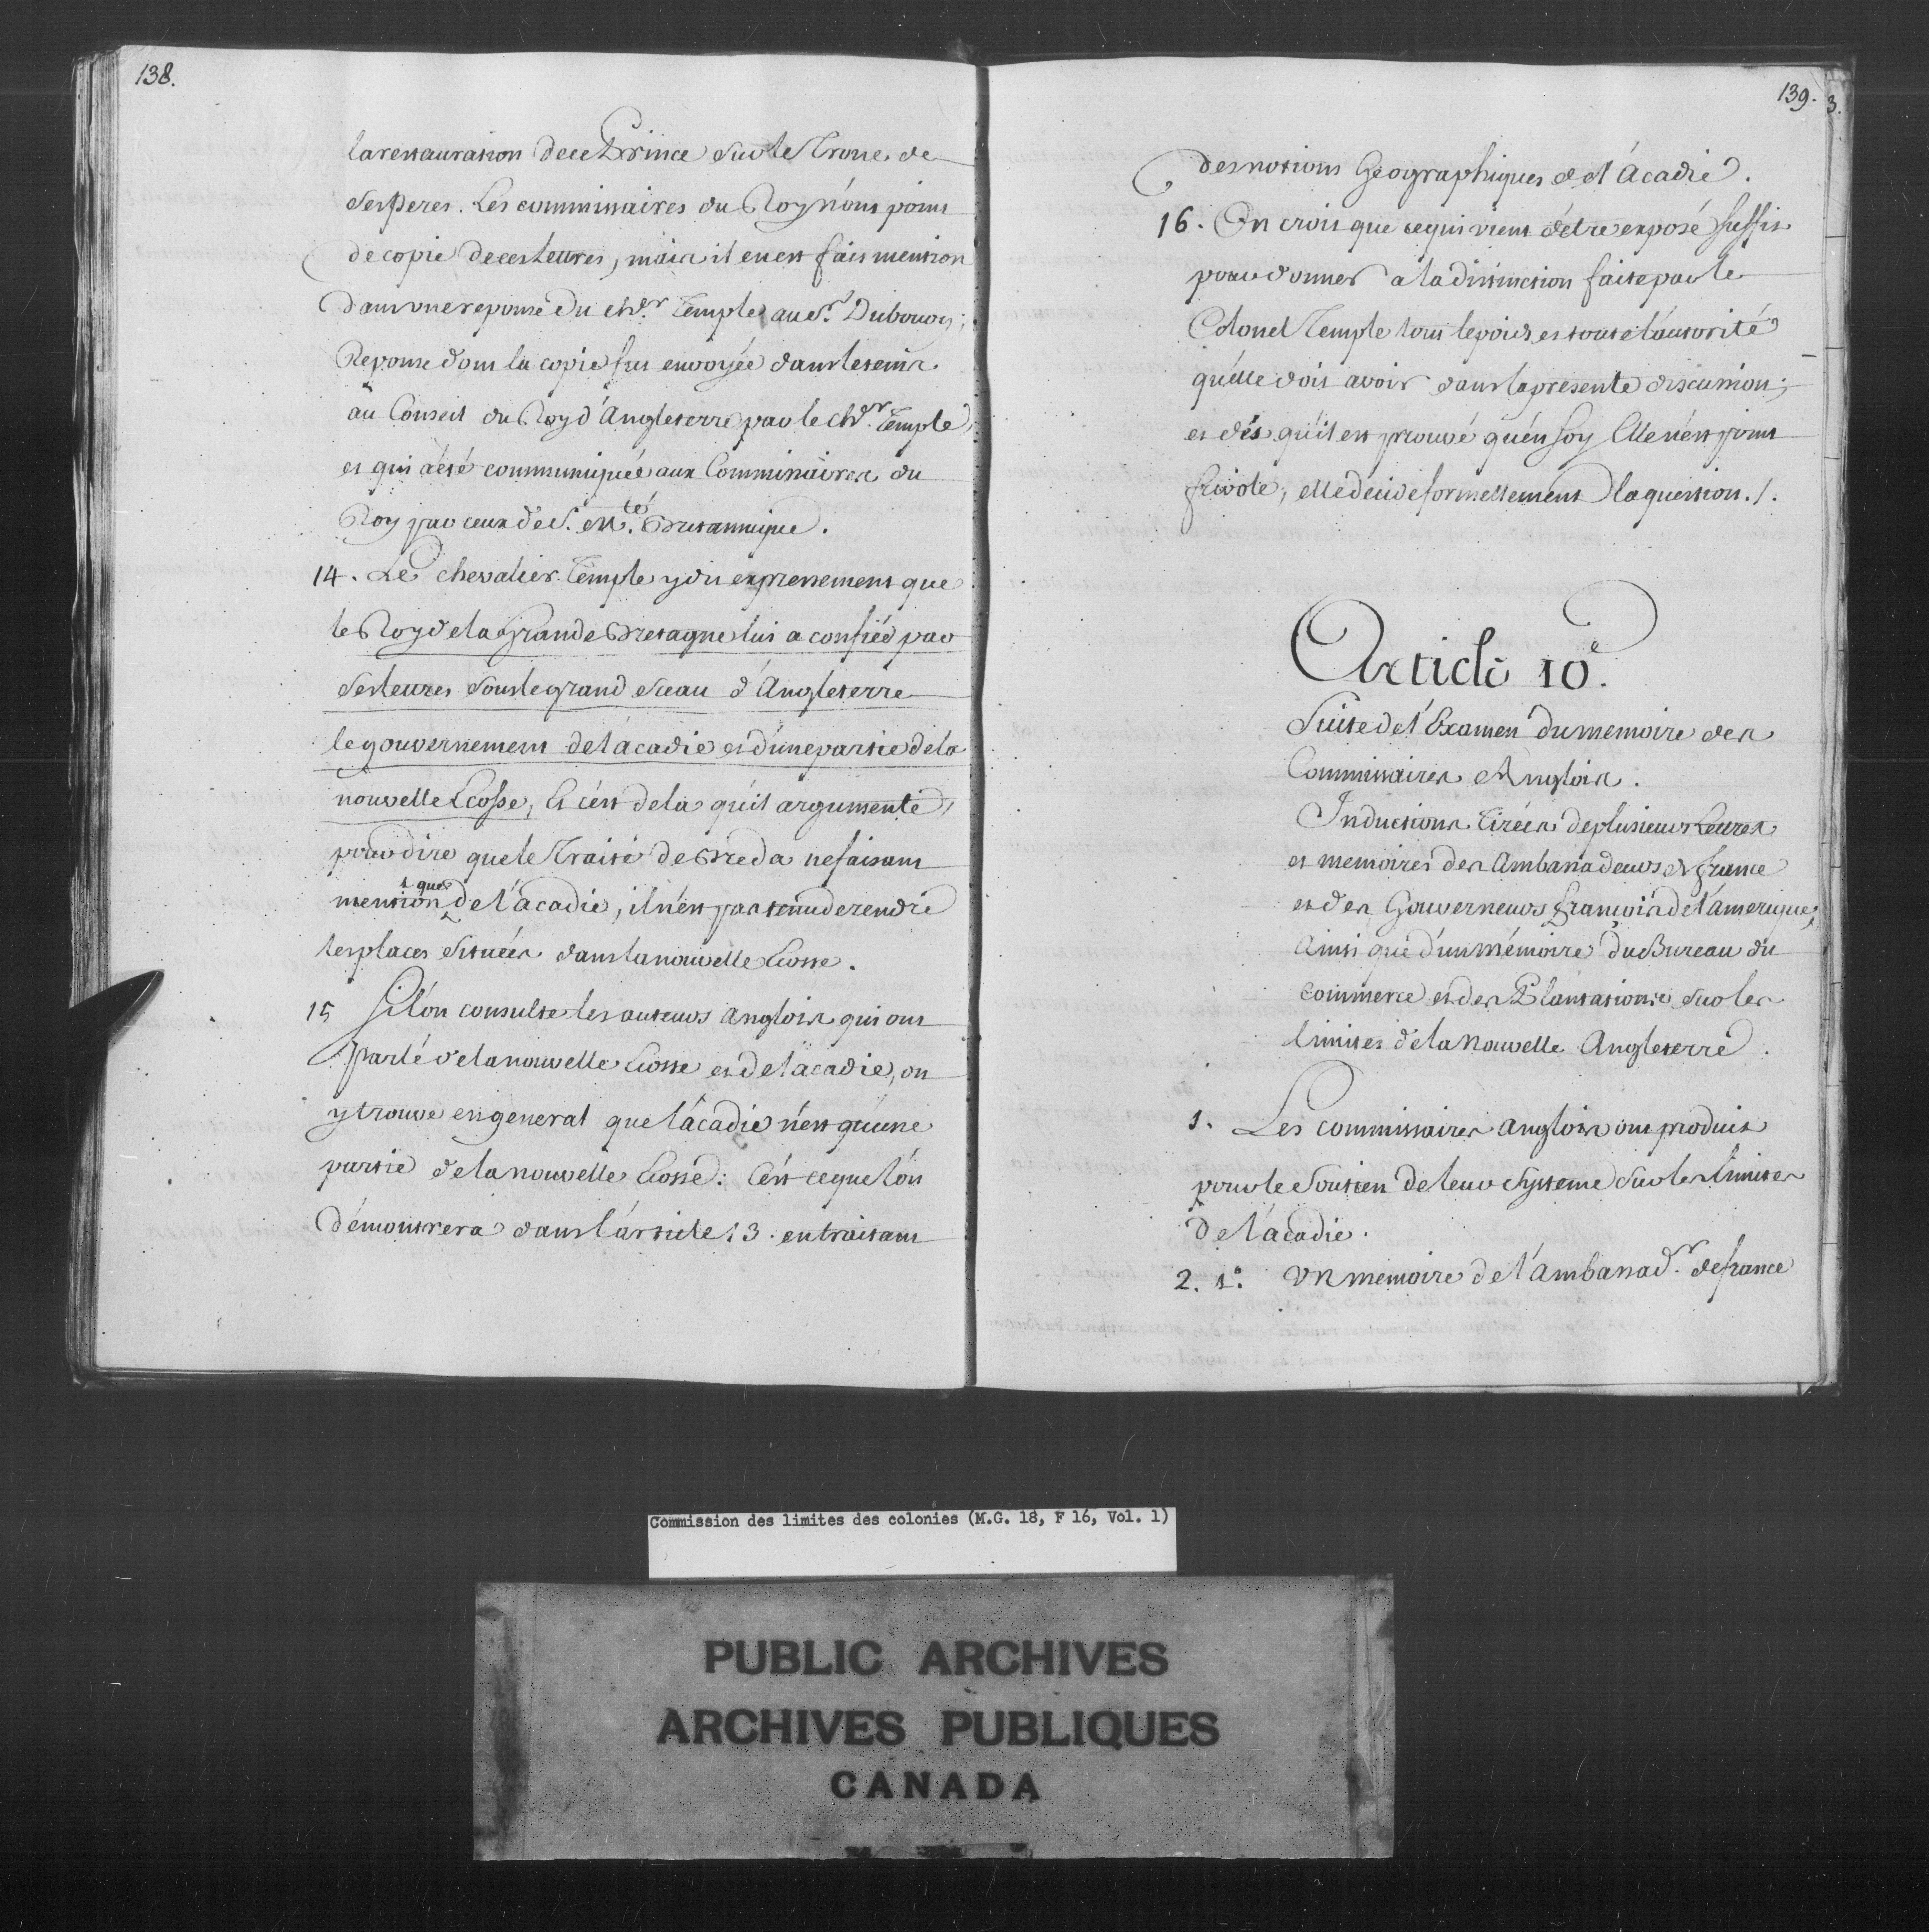 138.
la restauration de ce Prince sur le Trone de
ses Peres. Les commissaires du Roy n'ont point
de copie de ces lettres, mais il en est fait mention
dans une reponse du chr. Temple au Sr. Dubourg;
Reponse dont la copie fut envoyée dans le tems
au Conseil du Roy d'Angleterre par le chr. Temple,
et qui a été communiquée aux Commissaires du
Roy par ceux de S. Mté. Britannique.
14. Le chevalier Temple y dit expressement que
le Roy de la Grande Bretagne lui a confiée par
ses lettres sous le grand sceau d'Angleterre
le gouvernement de l'acadie et d'une partie de la
nouvelle Ecosse, Et c'est de la qu'il argumente,
pour dire que le Traité de Breda ne faisant
mention que de l'acadie, il n'est pas tenu de rendre
les places situées dans la nouvelle Ecosse.
15 Si l'on consulte les auteurs anglois qui ont
parlé de la nouvelle Ecosse et de l'acadie, on
y trouve en general que l'acadie n'est qu'une
partie de la nouvelle Ecosse: C'est ce que l'on
démontrera dans l'article 13. en traitant
139. 3.
des notions Géographiques de l'Acadie.
16. On croit que ce qui vient d'être exposé suffit
pour donner a la distinction faite par le
Colonel Temple tout le poids et toute l'autorité
qu'elle doit avoir dans la presente discussion;
et dés qu'il est prouvé qu'en soy Elle n'est point
frivole, elle decide formellement la question./.
Article 10e.
Suite de l'Examen du memoire des
Commissaires Anglois.
Inductions Tirées de plusieurs Lettres
et memoires des Ambassadeurs de france
et des Gouverneurs françois de l'amerique;
Ainsi que d'un mémoire du Bureau du
commerce et des Plantations sur les
limites de la Nouvelle Angleterre.
1. Les commissaires anglois ont produit
pour le soutien de leur systeme sur les limites
de l'acadie.
2. 1o. Un memoire de l'ambassadr. de france
Commission des limites des colonies (M.G. 18, F 16, Vol. 1)
PUBLIC ARCHIVES
ARCHIVES PUBLIQUES
CANADA